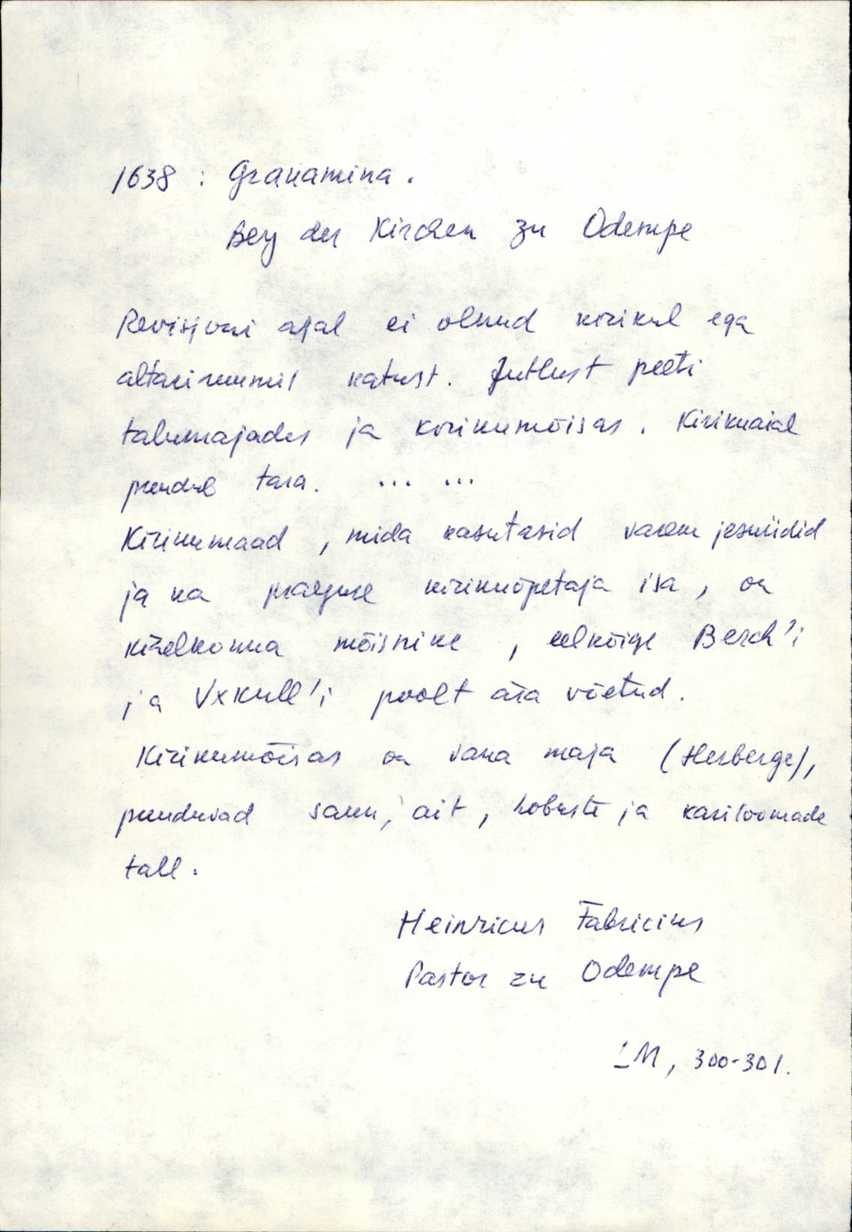 1638 : Gravamina.
Bey der Kirchen zu Odempe
Revisjoni ajal ei olnud kirikul ega
altariruumil katust. Jutlust peeti
talumajades ja kirikumõisas. Kirikuaial
puudub tara. ... ...
Kirikumaad, mida kasutasid varem jesuiidid
ja ka praeguse kirikuõpetaja isa, on
kihelkonna mõisnike, eelkõige Berch'i
ja Vxkull'i poolt ära võetud.
Kirikumõisas on vana maja (Herberge),
puuduvad saun, ait, hobuste ja kariloomade
tall.
Heinricus Fabricius
Pastor zu Odempe
LM, 300-301.